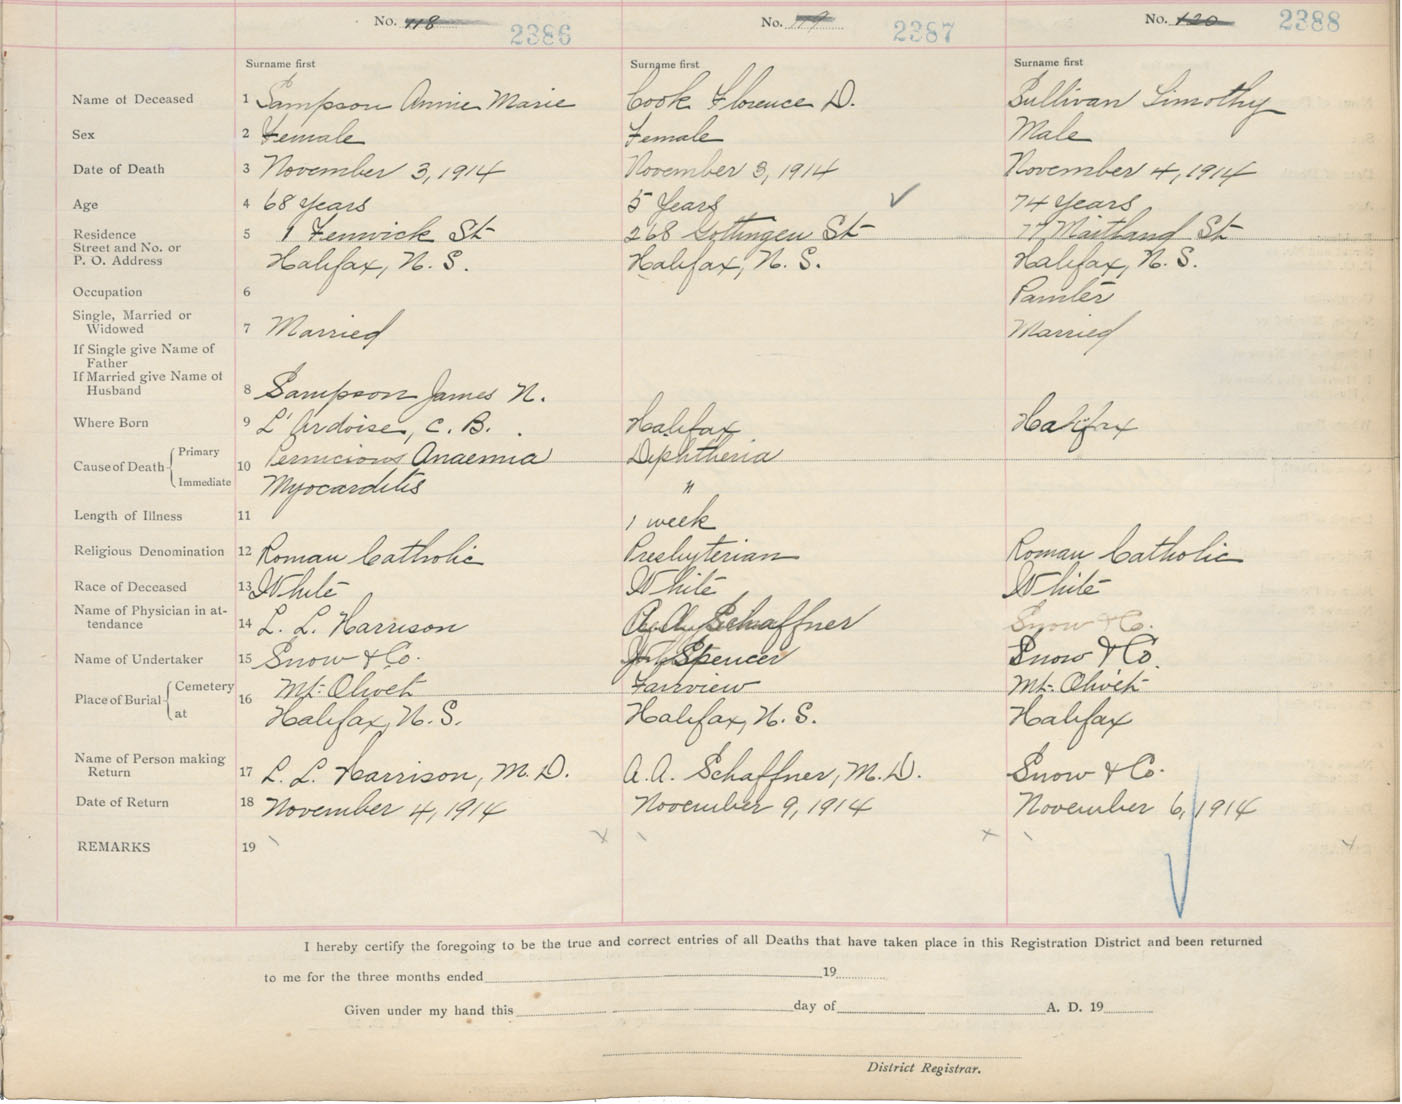 No. 118 2386 No. 119 2387 No. 120 2388
Surname first Surname first Surname first
Name of Deceased 1 Sampson Annie Marie Cook Florence D. Sullivan Timothy
Sex 2 Female Female Male
Date of Death 3 November 3, 1914 November 3, 1914 November 4, 1914
Age 4 68 Years 5 Years ✓ 74 Years
Residence 5 1 Fenwick St 268 Gottingen St 77 Maitland St
Street and No. or
P. O. Address Halifax, N. S. Halifax, N. S. Halifax, N. S.
Occupation 6 Painter
Single, Married or
Widowed 7 Married Married
If Single give Name of
Father
If Married give Name of
Husband 8 Sampson James N.
Where Born 9 L'Ardoise, C. B. Halifax Halifax
Cause of Death { Primary 10 Pernicious Anaemia Diphtheria
Immediate Myocarditis "
Length of Illness 11 1 week
Religious Denomination 12 Roman Catholic Presbyterian Roman Catholic
Race of Deceased 13 White White White
Name of Physician in at-
tendance 14 L. L. Harrison A. A. Schaffner Snow & Co.
Name of Undertaker 15 Snow & Co. Spencer Snow & Co.
Place of Burial { Cemetery 16 Mt. Olivet Fairview Mt. Olivet
at Halifax, N. S. Halifax, N. S. Halifax
Name of Person making
Return 17 L. L. Harrison, M. D. A. A. Schaffner, M. D. Snow & Co.
Date of Return 18 November 4, 1914 November 9, 1914 November 6, 1914
REMARKS 19
I hereby certify the foregoing to be the true and correct entries of all Deaths that have taken place in this Registration District and been returned
to me for the three months ended 19
Given under my hand this day of A. D. 19
District Registrar.